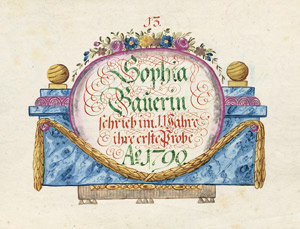 13.
Sophia
Bauerin
schrieb im 11 Jahre
ihre erste Probe
Aº. 1790